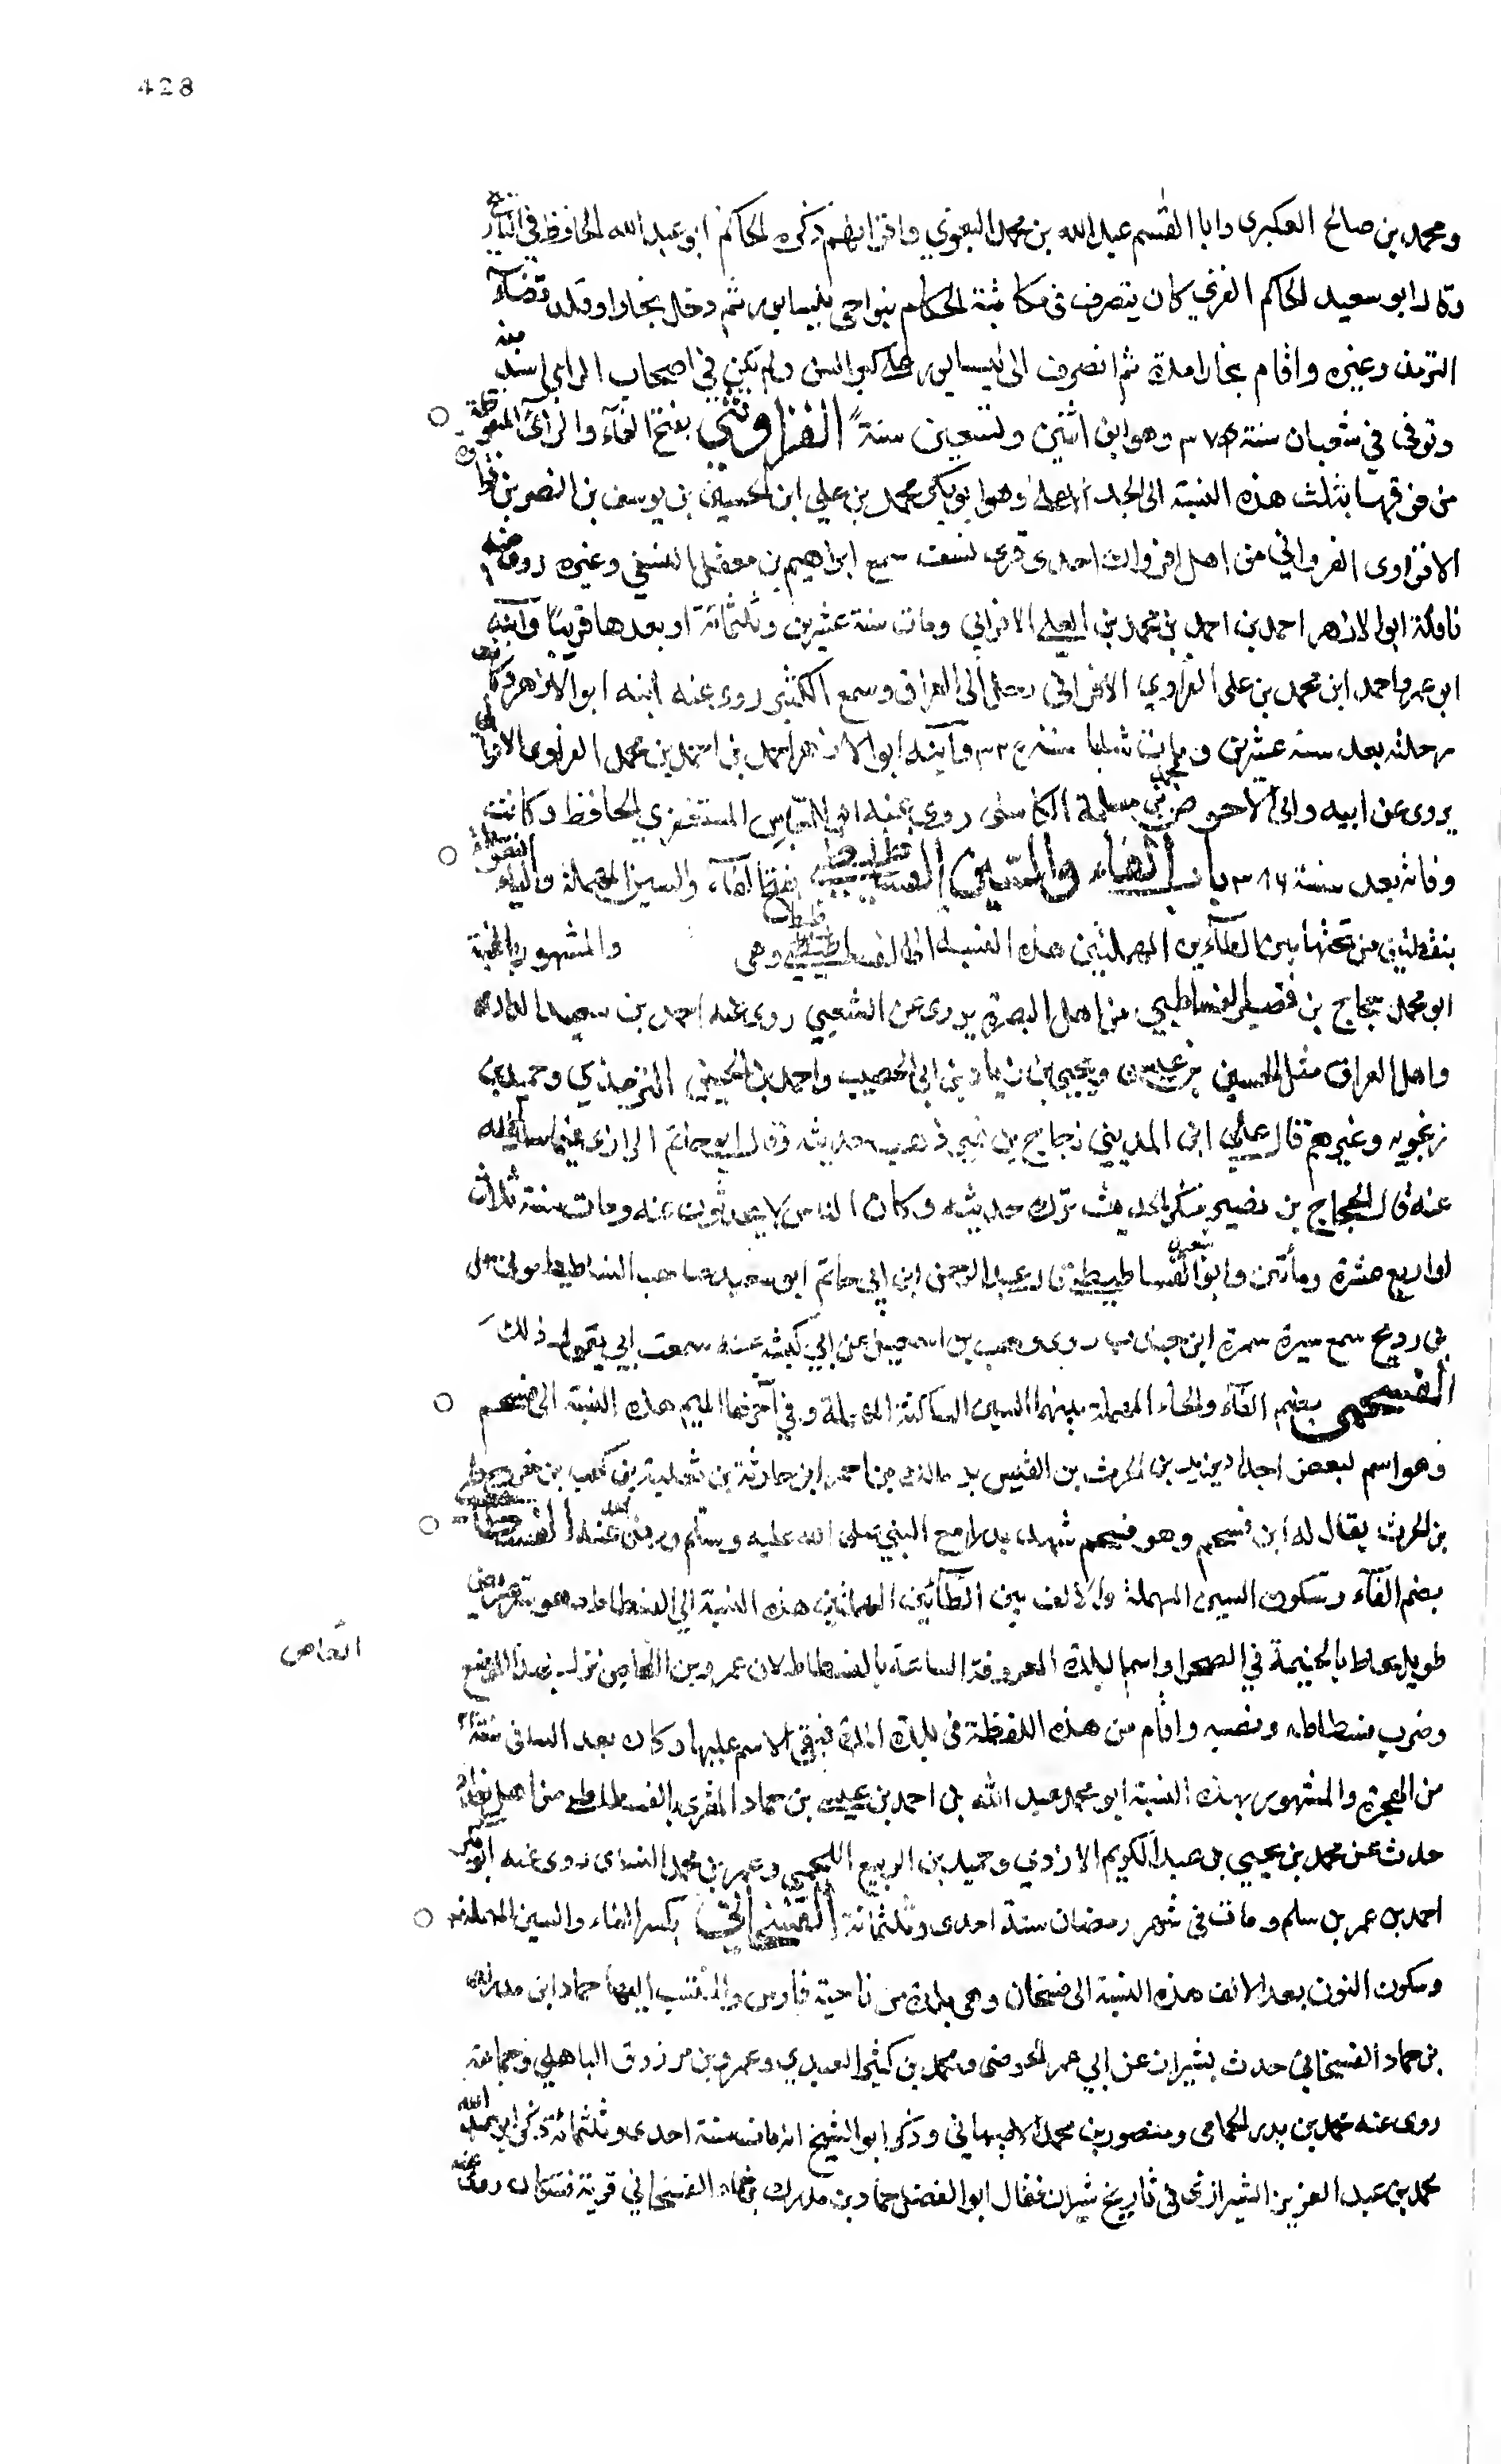 428
ومحمد بن صالح العكبري وابا القسم عبد الله بن محمد البغوي واقرانهم ذكره الحاكم ابو عبد الله الحافظ في التاريخ
وقال ابو سعيد الحاكم الفزي كان يتصرف في مكاتبة الحكام بنواحي نيسابور ثم دخل بخارا وقلد قضاء
الترمذ وغيره واقام بخارا مدة ثم انصرف الى نيسابور على كبر السن ولم يكن في اصحاب الراي اسند منه
وتوفى في شعبان سنة وهو ابن اثنتين وتسعين سنة بفتح الفاء والراي المنقوطة
من فوقها بثلث هذه النسبة الى الجد الاعلى وهو ابو بكر محمد بن علي ابن الحسين بن يوسف بن النضر بن
الافزاوى الفروانى من اهل افزوان احدى قرى نسف سمع ابراهيم بن معقل النسفي وغيره روى عنه
نافلته ابو الازهر احمد بن احمد بن محمد بن العلى الافرانى ومات سنة عشرين وثلثمائة او بعدها قريبا وابنه
ابو عمرو احمد ابن محمد بن على الفزاوي الافرانى رحل الى العراق وسمع الكثير روى عنه ابنه ابو الازهر وكانت
رحلته بعد سنة عشرين ومات شابا سنة وابنه ابو الازهر احمد بن احمد بن محمد الفراوى الافرانى
يروى عن ابيه وابى الاحوص محمد بن مسلمة الكاسنى روى عنه ابو العباس المستغفري الحافظ وكانت
وفاته بعد سنة ٣٨٦ باب الفاء والسين الفساطيطى بفتح الفاء والسين المهملة والياء المنقوطة
بنقطتين من تحتها بين الطاءين المهملتين هذه النسبة الى الفساطيط وهى والمشهور بالنسبة
ابو محمد حجاج بن نصير الفساطيطي من اهل البصرة يروى عن الشعبي روى عنه احمد بن سعيد الدارمى
واهل العراق مثل الحسين بن عيسى ويحيى بن زياد بن ابى الخصيب واحمد بن الحسن الترمذي وحميد بن
زنجويه وغيرهم قال على ابن المدينى حجاج بن نصير ذهب حديثه وقال ابو حاتم الرازى فيما سالته
عنه قال الحجاج بن نصير منكر الحديث ترك حديثه وكان الناس لا يحدثون عنه ومات سنة ثلاث
او اربع عشرة ومأتين وابو سعيد الفساطيطى قال عبد الرحمن ابن ابى حاتم ابو سعيد صاحب الفساطيط مولى
بنى رويح سمع سيرة سمرة ابن جندب روى وهب بن اسمعيل عن ابى كبشه عنه سمعت ابي يقول ذلك
الفسحمى بضم الفاء والحاء المهملة بينهما السين الساكنة المهملة وفي آخرها الميم هذه النسبة الى فسحم
وهو اسم لبعض اجداد يزيد بن الحرث بن القيس بن مالك من احمر ابن حارثة بن ثعلبة بن كعب بن الخزرج
بن الحرث يقال له ابن فسحم وهو فسحم شهد بدرا مع النبي صلى الله عليه وسلم ورضى الله عنه الفسطاطى
بضم الفاء وسكون السين المهملة والالف بين الطائين المهملتين هذه النسبة الى الفسطاط وهو
طويل يحاط بالخيمة في الصحرا واسم البلدة المعروفة الساعة بالفسطاط لان عمرو بن العاص نزل بهذا الموضع
العاص
وضرب فسطاطه ونصبه واقام من هذه اللفظة فى بلدة الملك فبقى الاسم عليها وكان بعد
من الهجرة والمشهور بهذه النسبة ابو محمد عبد الله بن احمد بن عيسى بن حماد المقرى الفسطاطى من اهل بغداد
حدث عن محمد بن يحيى بن عبد الكريم الازدي وحميد بن الربيع اللخمي وعمر بن محمد النسائى روى عنه ابو بكر
احمد بن عمر بن سلم ومات فى شهر رمضان سنة احدى وثلثمائة الفسنجانى بكسر الفاء والسين المهملة
وسكون النون بعد الالف هذه النسبة الى فسنجان وهى بلدة من ناحية فارس والمنتسب اليها حماد ابن مدرك
بن حماد الفسنجانى حدث بشيران عن ابي عمر الحوضى ومحمد بن كثير العبدي وعمرو بن مرزوق الباهلي وجماعة
روى عنه محمد بن بدر الحمامى ومنصور بن محمد الاصبهاني وذكر ابو الشيخ انه مات سنة احدى وثلثمائة ذكر ابو عبد الله
محمد بن عبد العزيز الشيرازى فى تاريخ شيران فقال ابو الفضل حماد بن مدرك بن حماد الفسنجانى قرية فسنجان روى عنه